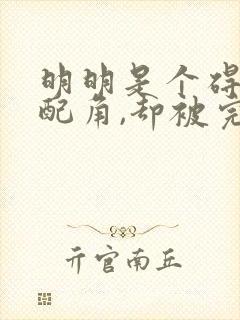 明明是个碍
配角,却被完
亓官南丘